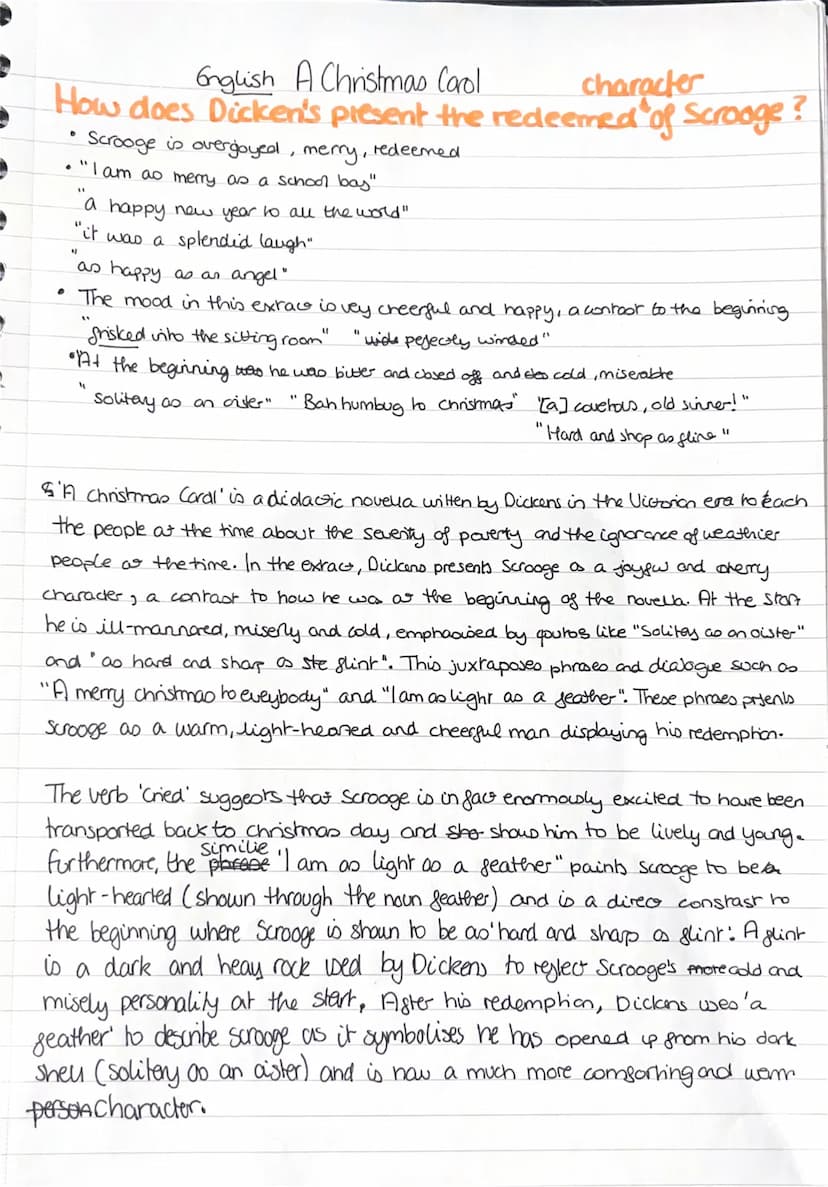 English A Christmas Carol
How does Dicken's present the redeemed character of Scrooge?
• Scrooge is overjoyed, merry, redeemed
• "I am as merry as a school boy"
"a happy new year to all the world"
"it was a splendid laugh"
"as happy as an angel"
• The mood in this extract is vey cheerful and happy, a contast to the beginning
"frisked into the sitting room" "wide pefectly winded"
• At the beginning was he was bitter and closed off and also cold, miserable
"solitary as an oister" "Bah humbug to christmas" "[a] covetous, old sinner!"
"Hard and shap as flint"
'A Christmas Carol' is a didactic novella written by Dickens in the Victorian era to teach
the people at the time about the severity of poverty and the ignorance of wealthier
people at the time. In the extract, Dickens presents Scrooge as a joyful and cherry
character, a contast to how he was at the beginning of the novella. At the start
he is ill-mannared, miserly and cold, emphasised by quotes like "Solitay as an oister"
and "as hard and sharp as ste flint". This juxtaposes phrases and dialogue such as
"A merry christmas to eveybody" and "I am as light as a feather". These phrases prtents
Scrooge as a warm, light-hearted and cheerful man displaying his redemption.
The verb 'cried' suggests that Scrooge is in fact enormously excited to have been
transported back to christmas day and sho shows him to be lively and young.
Furthermore, the phrase similie 'I am as light as a feather" paints scrooge to be a
light-hearted (shown through the noun feather) and is a direct constast to
the beginning where Scrooge is shown to be as 'hard and sharp as flint'. A flint
is a dark and heavy rock used by Dickens to reflect Scrooge's more cold and
misely personality at the start. After his redemption, Dickens uses 'a
feather' to describe scrooge as it symbolises he has opened up from his dark
shell (solitery as an oister) and is now a much more comforting and warm
person character.